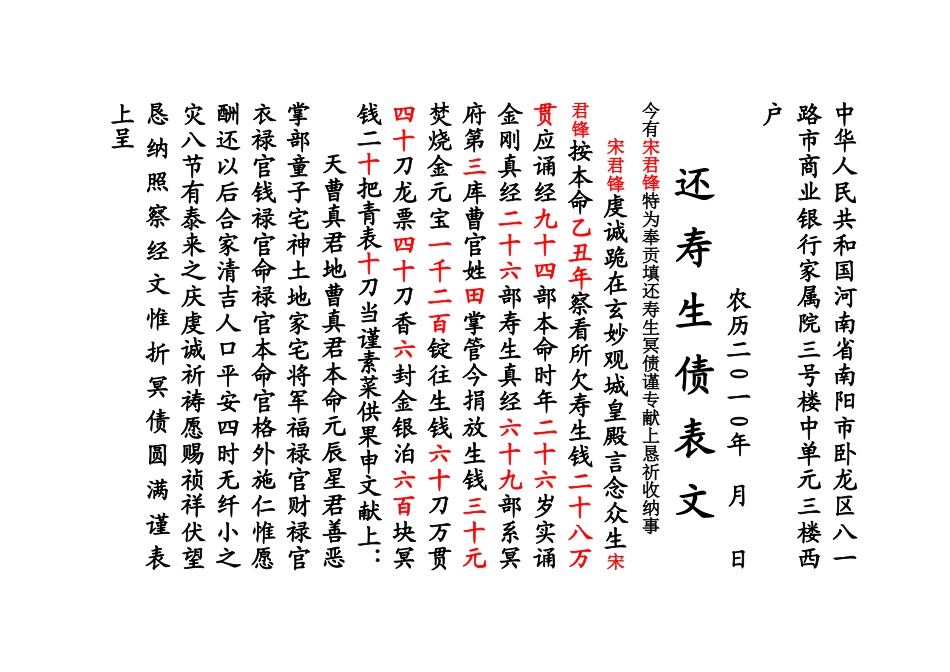 中华人民共和国河南省南阳市卧龙区八一
路市商业银行家属院三号楼中单元三楼西
户
农历二0一0年 月 日
还寿生债表文
今有宋君锋特为奉贡填还寿生冥债谨专献上恳祈收纳事
宋君锋虔诚跪在玄妙观城皇殿言念众生宋
君锋按本命乙丑年察看所欠寿生钱二十八万
贯应诵经九十四部本命时年二十六岁实诵
金刚真经二十六部寿生真经六十九部系冥
府第三库曹官姓田掌管今捐放生钱三十元
焚烧金元宝一千二百锭往生钱六十刀万贯
四十刀龙票四十刀香六封金银泊六百块冥
钱二十把青表十刀当谨素菜供果申文献上：
天曹真君地曹真君本命元辰星君善恶
掌部童子宅神土地家宅将军福禄官财禄官
衣禄官钱禄官命禄官本命官格外施仁惟愿
酬还以后合家清吉人口平安四时无纤小之
灾八节有泰来之庆虔诚祈祷愿赐祯祥伏望
恳纳照察经文惟折冥债圆满谨表
上呈